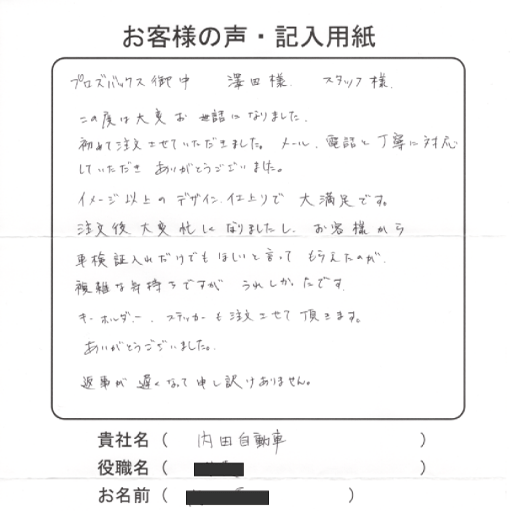 お客様の声・記入用紙
プロズバックス御中　澤田様.　スタッフ様.
この度は大変お世話になりました.
初めて注文させていただきました。メール、電話と丁寧に対応
していただきありがとうございました。
イメージ以上のデザイン.仕上りで大満足です。
注文後大変忙しくなりましたし、お客様から
車検証入れだけでもほしいと言ってもらえたのが、
複雑な気持ちですがうれしかったです.
キーホルダー、ステッカーも注文させて頂きます。
ありがとうございました。
返事が遅くなって申し訳けありません。
貴社名（ 内田自動車 ）
役職名（ ）
お名前（ ）